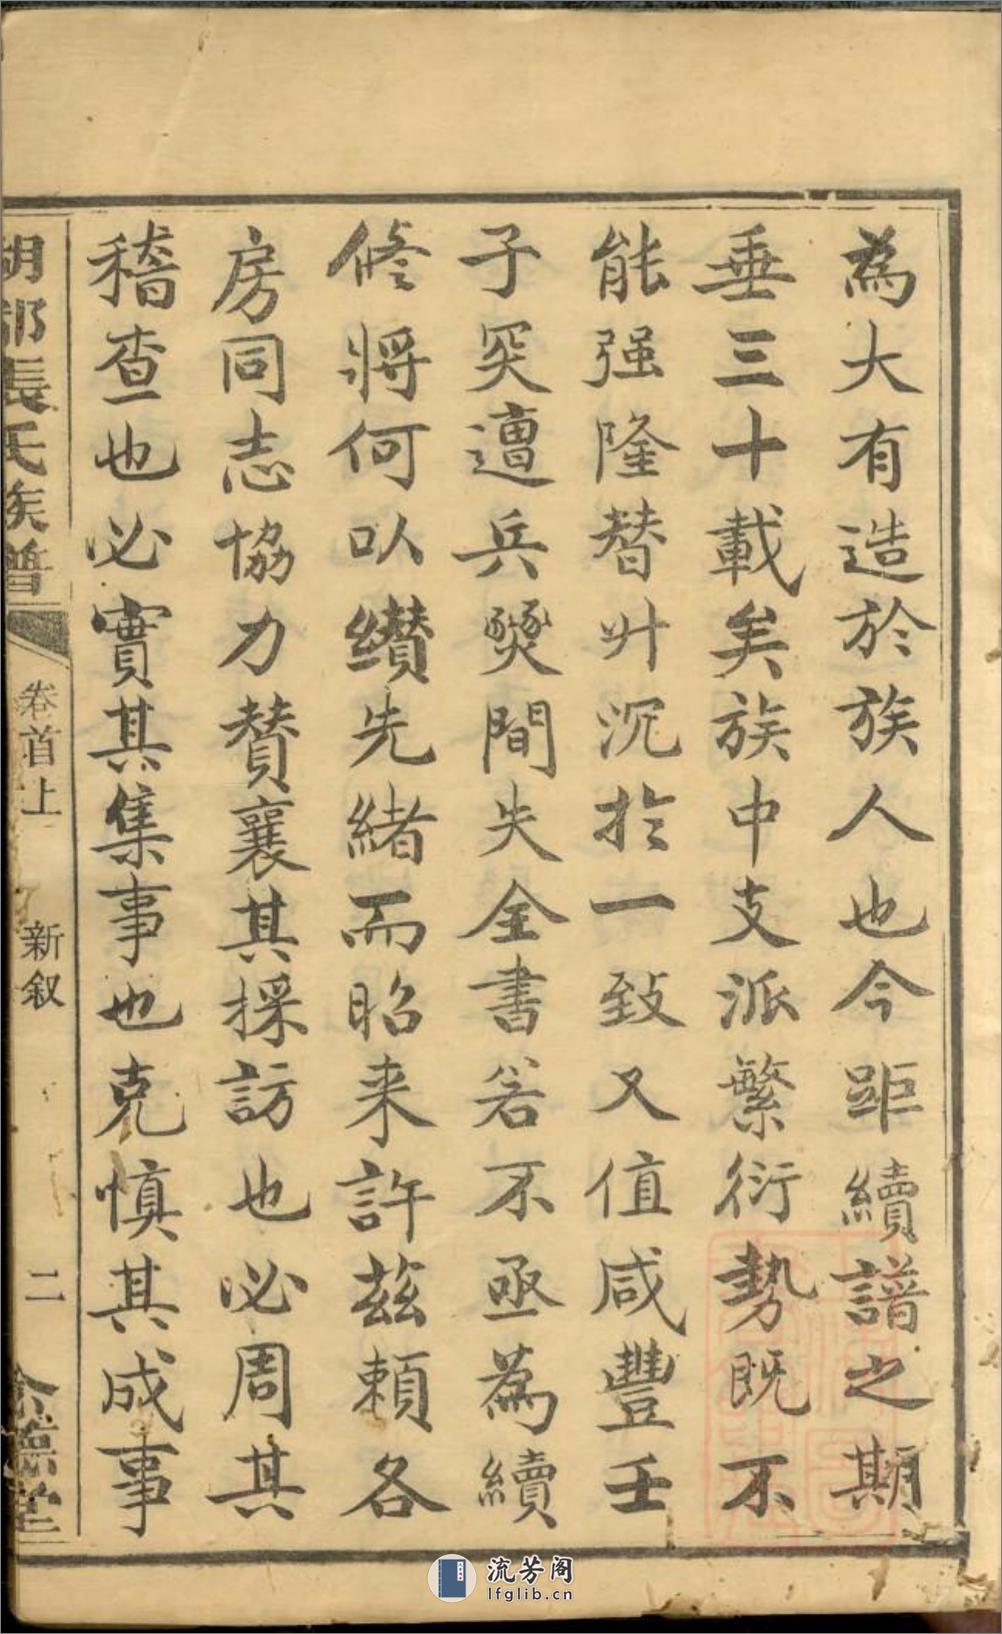 為大有造於族人也今距續譜之期
垂三十載矣族中支派繁衍勢既不
能强隆替升沉於一致又值咸豐壬
子突遭兵燹間失全書若不亟為續
修將何以纘先緒而昭来許茲賴各
房同志協力贊襄其採訪也必周其
稽查也必實其集事也克慎其成事
胡郡張氏族譜
卷首上
新叙
二
德堂
流芳阁
lfglib.cn